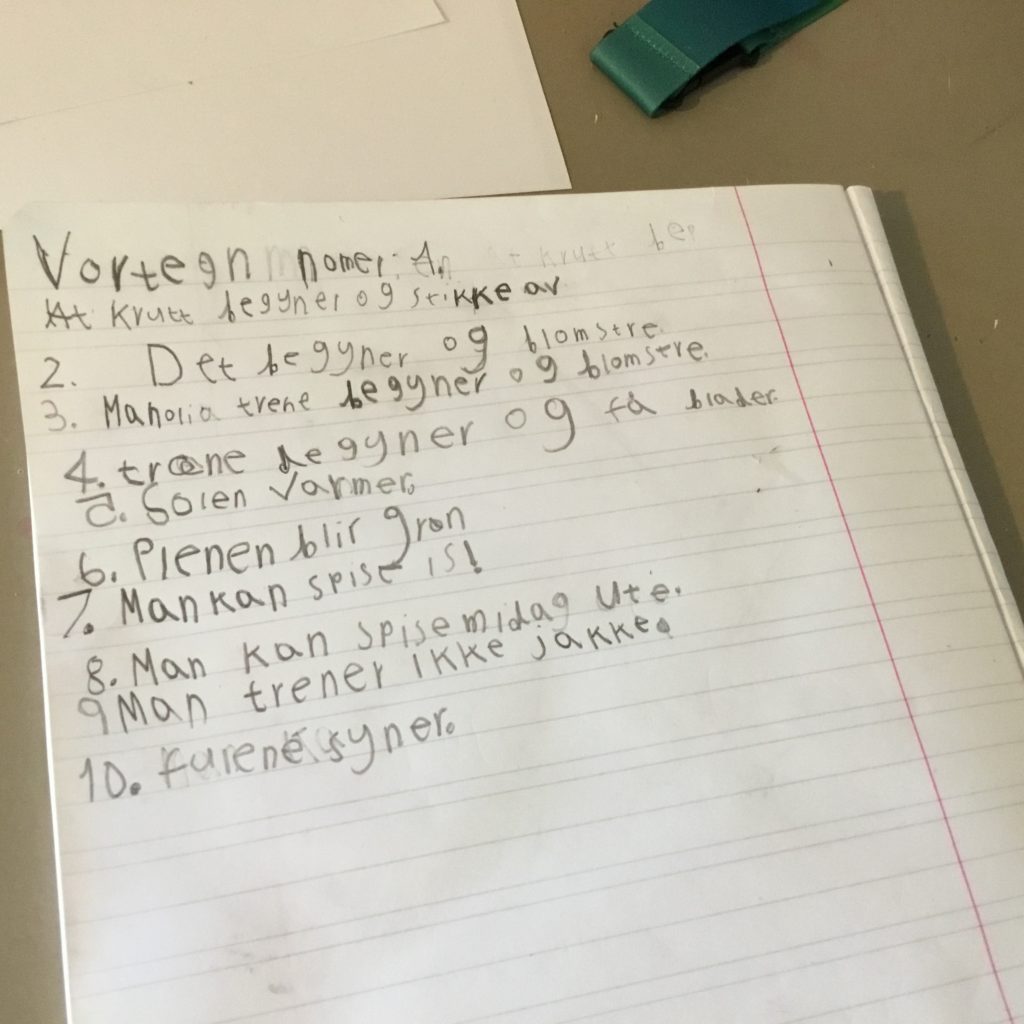 Vortegn nomer: An
At Krutt begyner og stikke av
2. Det begyner og blomstre.
3. Manolia trene begyner og blomstre.
4. trene begyner og få blader.
5. Solen varmer.
6. Plenen blir grøn
7. Man kan spise is!
8. Man kan spise midag Ute.
9 Man trener ikke jakke.
10. fulene syner.